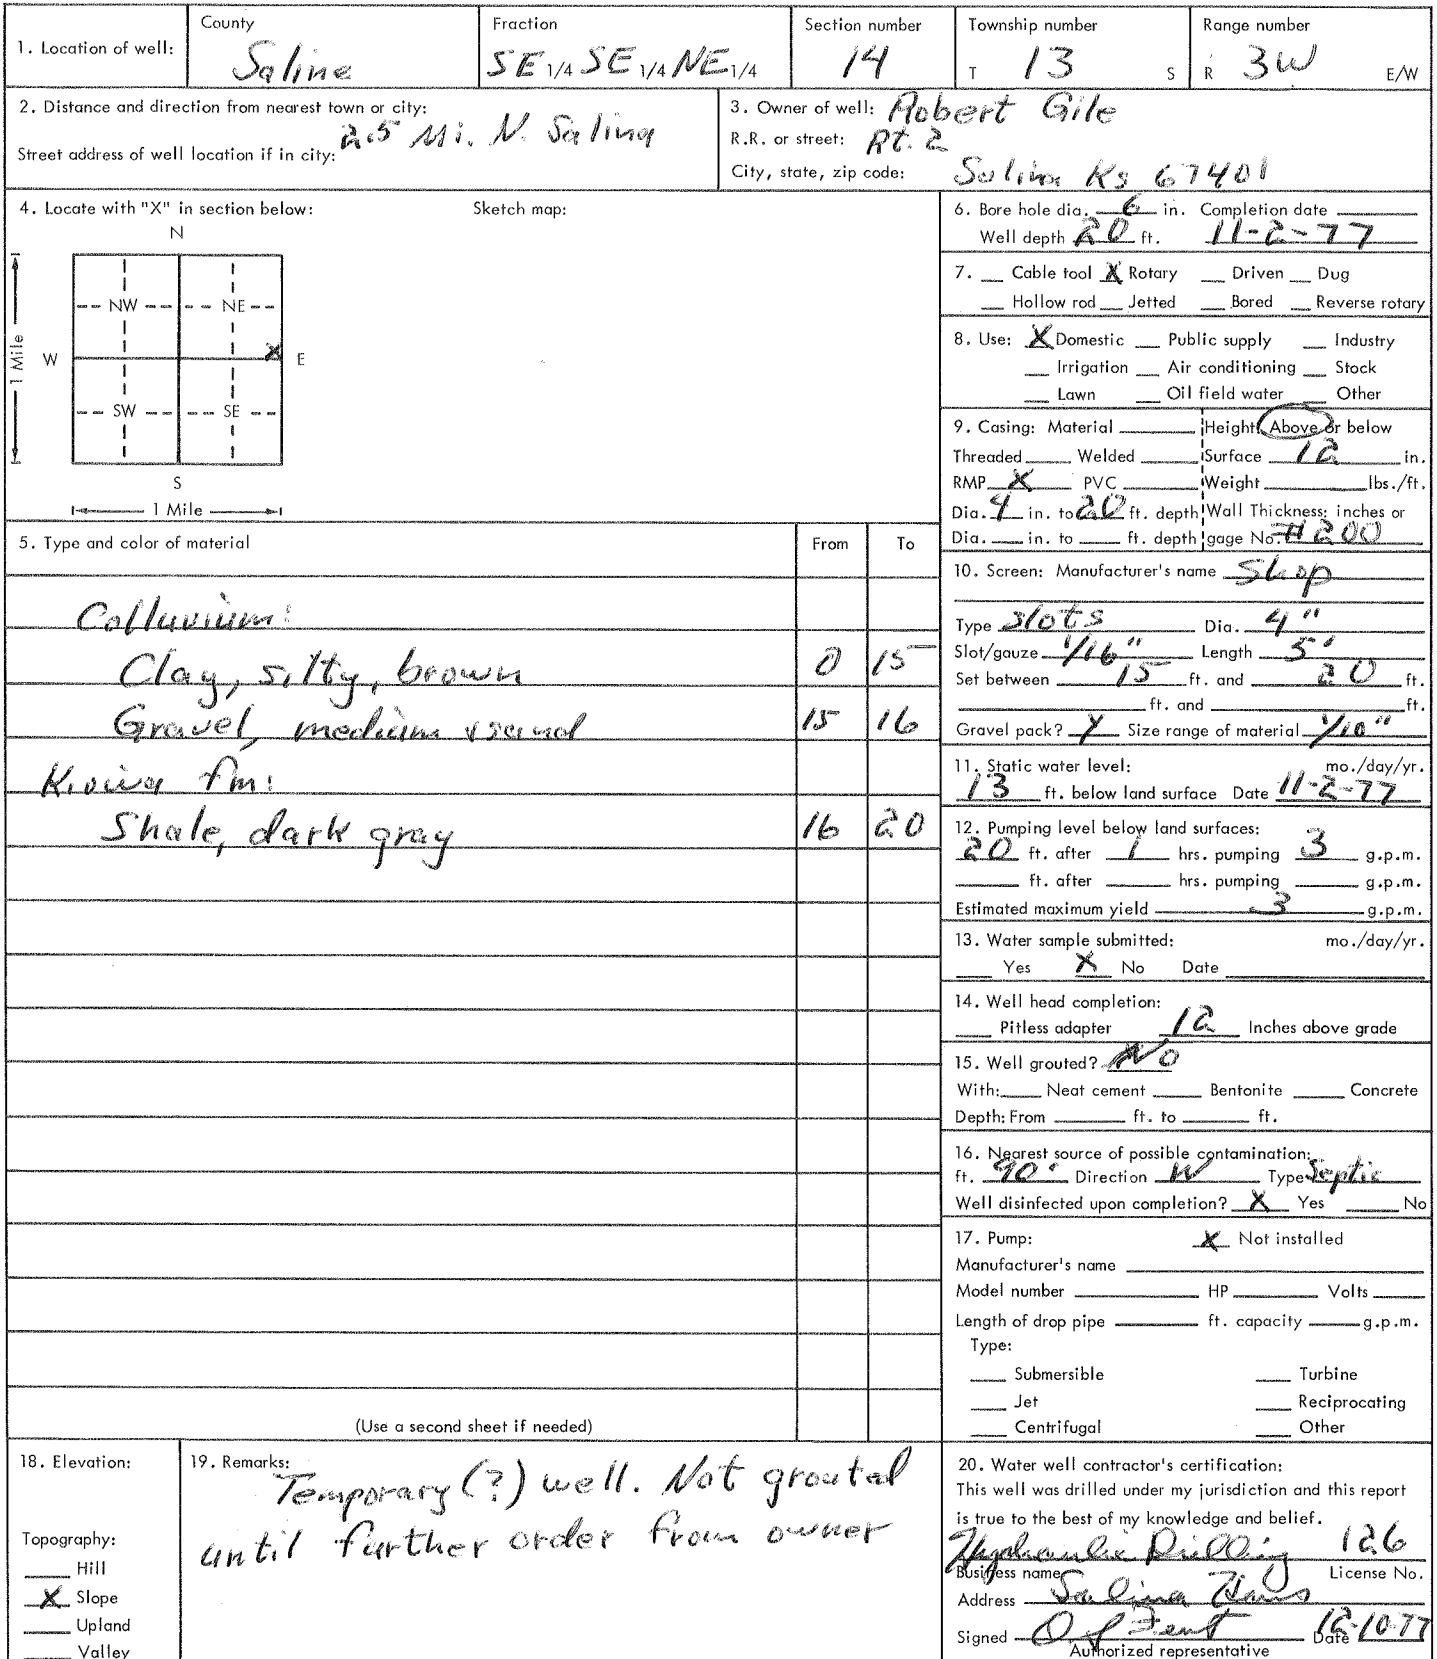 1. Location of well: County Saline Fraction SE 1/4 SE 1/4 NE 1/4 Section number 14 Township number T 13 S Range number R 3W E/W
2. Distance and direction from nearest town or city: 2.5 Mi. N. Salina
Street address of well location if in city:
3. Owner of well: Robert Gile
R.R. or street: Rt. 2
City, state, zip code: Salina Ks 67401
4. Locate with "X" in section below: Sketch map:
N
NW NE
W X E
1 Mile
SW SE
S
1 Mile
5. Type and color of material From To
Colluvium:
Clay, silty, brown 0 15
Gravel, medium & sand 15 16
Kiowa fm:
Shale, dark gray 16 20
(Use a second sheet if needed)
6. Bore hole dia. 6 in. Completion date
Well depth 20 ft. 11-2-77
7. Cable tool X Rotary Driven Dug
Hollow rod Jetted Bored Reverse rotary
8. Use: X Domestic Public supply Industry
Irrigation Air conditioning Stock
Lawn Oil field water Other
9. Casing: Material Height: Above or below
Threaded Welded Surface 12 in.
RMP X PVC Weight lbs./ft.
Dia. 4 in. to 20 ft. depth Wall Thickness: inches or
Dia. in. to ft. depth gage No. #200
10. Screen: Manufacturer's name Shop
Type slots Dia. 4"
Slot/gauze 1/16" Length 5'
Set between 15 ft. and 20 ft.
ft. and ft.
Gravel pack? Y Size range of material 1/10"
11. Static water level: mo./day/yr.
13 ft. below land surface Date 11-2-77
12. Pumping level below land surfaces:
20 ft. after 1 hrs. pumping 3 g.p.m.
ft. after hrs. pumping g.p.m.
Estimated maximum yield 3 g.p.m.
13. Water sample submitted: mo./day/yr.
Yes X No Date
14. Well head completion:
Pitless adapter 12 Inches above grade
15. Well grouted? No
With: Neat cement Bentonite Concrete
Depth: From ft. to ft.
16. Nearest source of possible contamination:
ft. 90' Direction W Type Septic
Well disinfected upon completion? X Yes No
17. Pump: X Not installed
Manufacturer's name
Model number HP Volts
Length of drop pipe ft. capacity g.p.m.
Type:
Submersible Turbine
Jet Reciprocating
Centrifugal Other
18. Elevation:
Topography:
Hill
X Slope
Upland
Valley
19. Remarks: Temporary (?) well. Not grouted
until further order from owner
20. Water well contractor's certification:
This well was drilled under my jurisdiction and this report
is true to the best of my knowledge and belief.
Hydraulic Drilling 126
Business name License No.
Address Salina Kans
Signed Date 12-10-77
Authorized representative